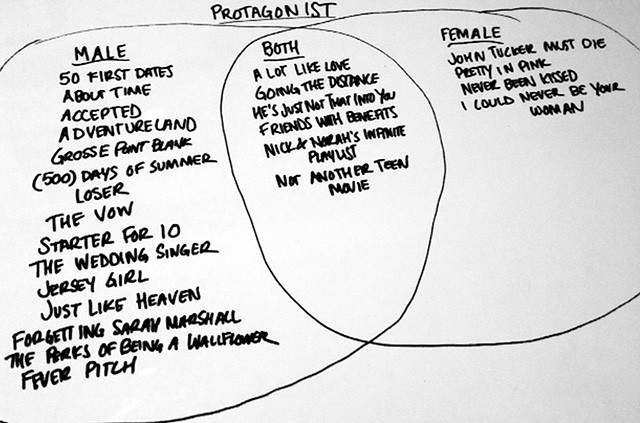 PROTAGONIST
MALE
50 FIRST DATES
ABOUT TIME
ACCEPTED
ADVENTURELAND
GROSSE POINT BLANK
(500) DAYS OF SUMMER
LOSER
THE VOW
STARTER FOR 10
THE WEDDING SINGER
JERSEY GIRL
JUST LIKE HEAVEN
FORGETTING SARAH MARSHALL
THE PERKS OF BEING A WALLFLOWER
FEVER PITCH
BOTH
A LOT LIKE LOVE
GOING THE DISTANCE
HE'S JUST NOT THAT INTO YOU
FRIENDS WITH BENEFITS
NICK & NORAH'S INFINITE
PLAYLIST
NOT ANOTHER TEEN
MOVIE
FEMALE
JOHN TUCKER MUST DIE
PRETTY IN PINK
NEVER BEEN KISSED
I COULD NEVER BE YOUR
WOMAN